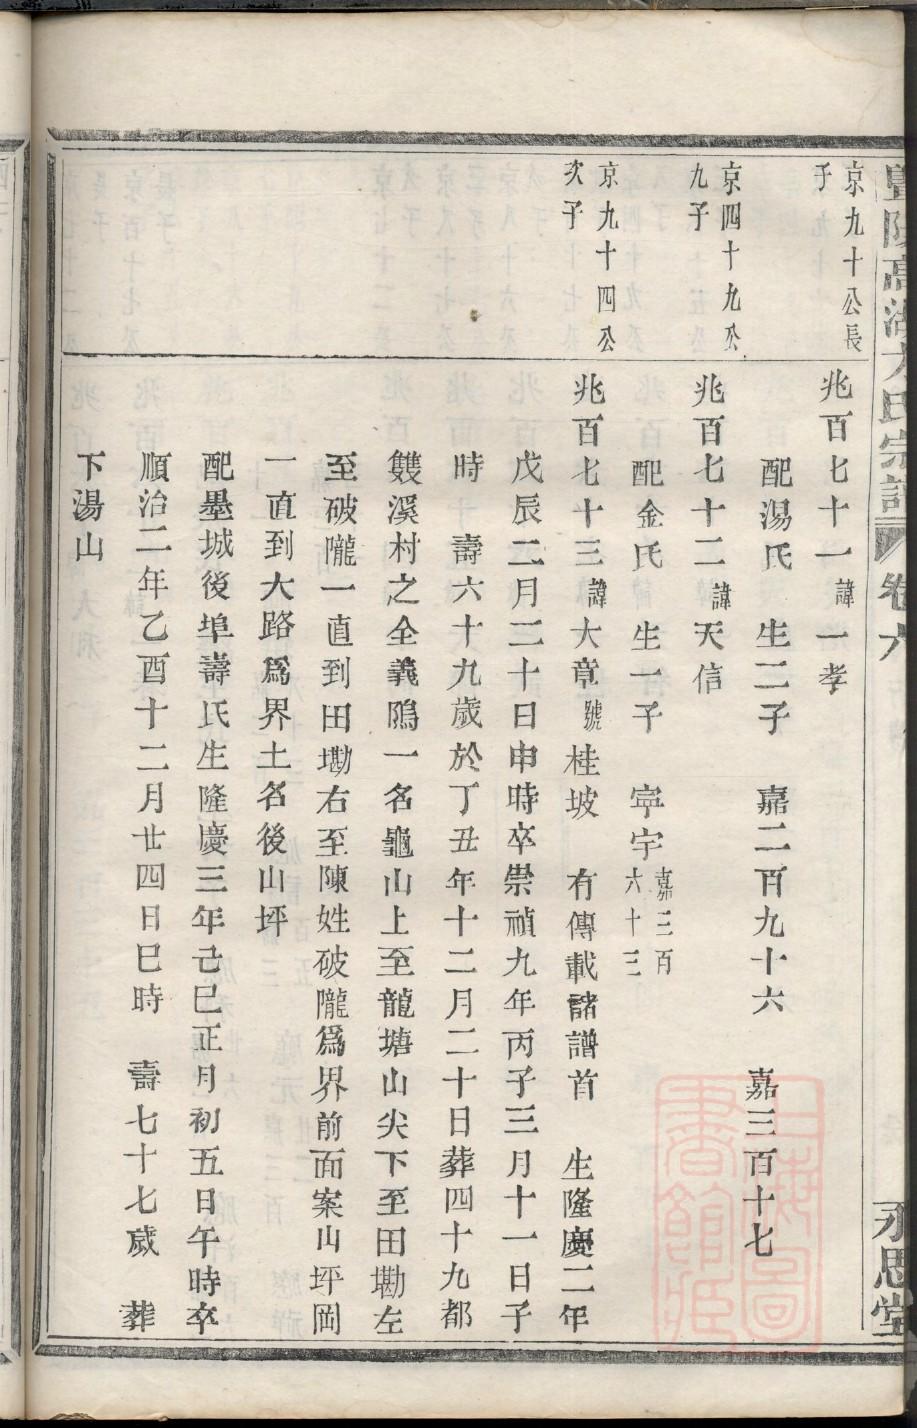 暨陽高湖方氏宗譜 卷六 永思堂
京九十公長子
兆百七十一諱一孝
配湯氏 生二子 嘉二百九十六 嘉三百十七
京四十九公九子
兆百七十二諱天信
配金氏 生一子 寧宇嘉三百六十三
京九十四公次子
兆百七十三諱大章號桂坡 有傳載諸譜首 生隆慶二年
戊辰二月二十日申時卒崇禎九年丙子三月十一日子
時 壽六十九歲於丁丑年十二月二十日葬四十九都
雙溪村之全義隖一名龜山上至龍塘山尖下至田墈左
至破隴一直到田墈右至陳姓破隴爲界前面案山坪岡
一直到大路爲界土名後山坪
配墨城後埠壽氏生隆慶三年己巳正月初五日午時卒
順治二年乙酉十二月廿四日巳時 壽七十七歲 葬
下湯山